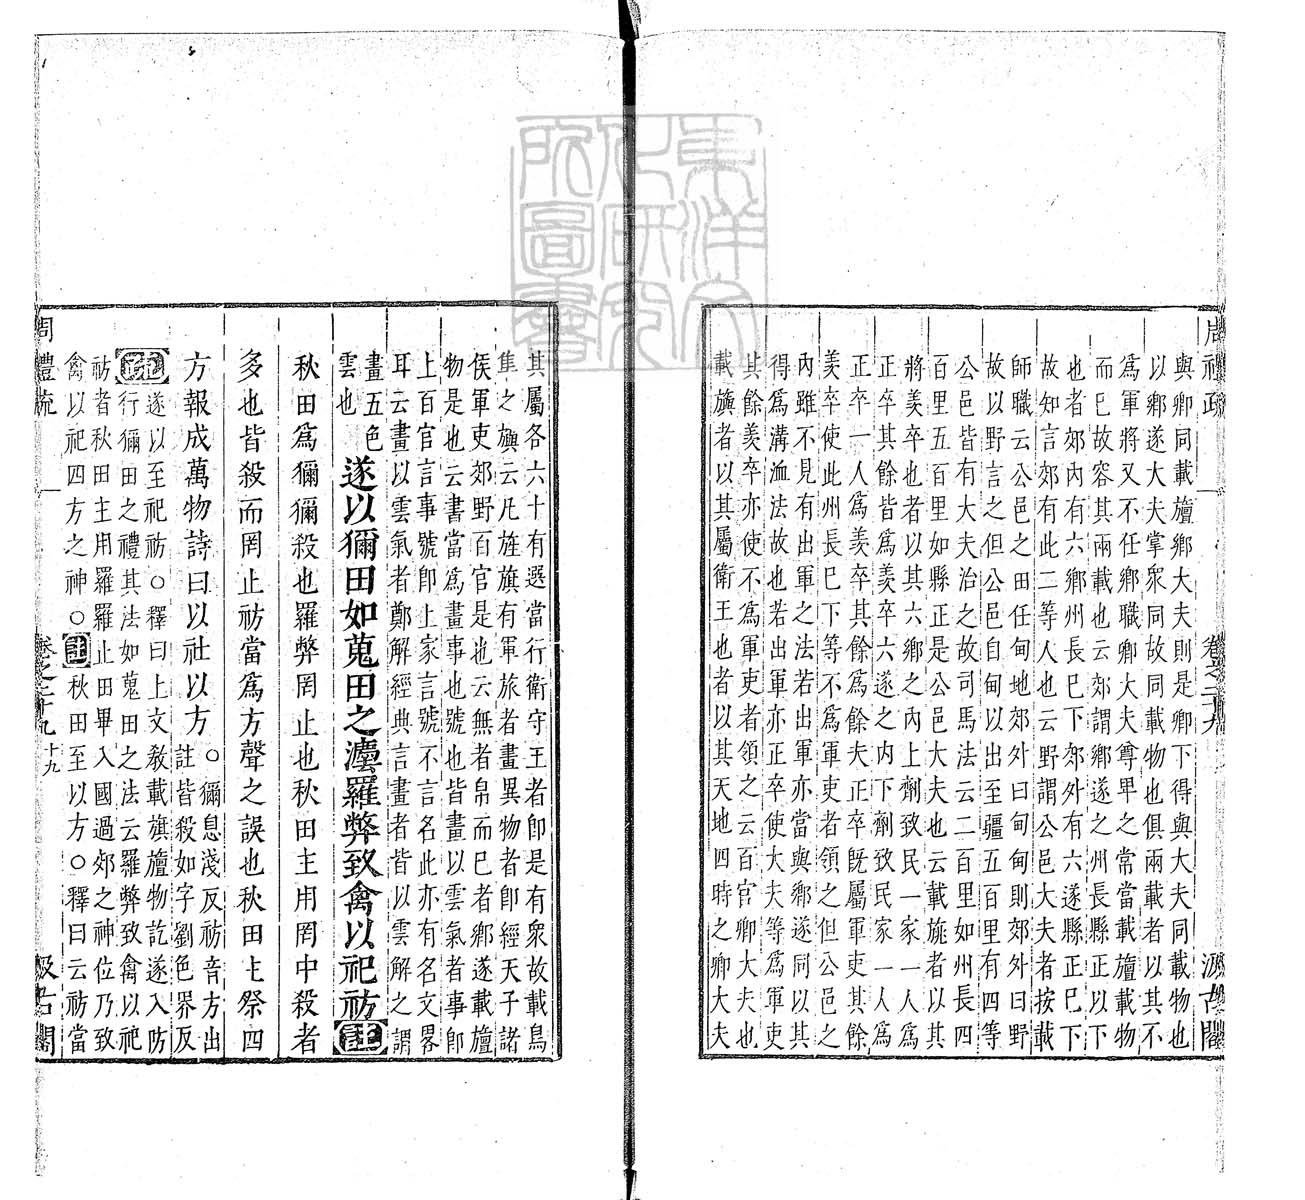 周禮疏 卷之二十九 汲古閣
與卿同載旜鄉大夫則是卿下得與大夫同載物也
以鄉遂大夫掌衆同故同載物也俱兩載者以其不
爲軍將又不任鄉職卿大夫尊卑之常當載旜載物
而已故容其兩載也云郊謂鄉遂之州長縣正以下
也者郊內有六鄉州長已下郊外有六遂縣正已下
故知言郊有此二等人也云野謂公邑大夫者按載
師職云公邑之田任甸地郊外曰甸甸則郊外曰野
故以野言之但公邑自甸以出至疆五百里有四等
公邑皆有大夫治之故司馬法云二百里如州長四
百里五百里如縣正是公邑大夫也云載旐者以其
將羡卒也者以其六鄉之內上劑致民一家一人爲
正卒其餘皆爲羡卒六遂之內下劑致民家一人爲
正卒一人爲羡卒其餘爲餘夫正卒旣屬軍吏其餘
羡卒使此州長巳下等不爲軍吏者領之但公邑之
內雖不見有出軍之法若出軍亦當與鄉遂同以其
得爲溝洫法故也若出軍亦正卒使大夫等爲軍吏
其餘羡卒亦使不爲軍吏者領之云百官卿大夫也
載旟者以其屬衛王也者以其天地四時之卿大夫
其屬各六十有選當行衛守王者卽是有衆故載鳥
隼之旟云凡旌旗有軍旅者畫異物者卽經天子諸
侯軍吏郊野百官是也云無者帛而巳者鄉遂載旜
物是也云書當爲畫事也號也皆畫以雲氣者事卽
上百官言事號卽上家言號不言名此亦有名文畧
耳云畫以雲氣者鄭解經典言畫者皆以雲解之謂
畫五色
雲也
遂以獮田如蒐田之灋羅弊致禽以祀祊註
秋田爲獮獮殺也羅弊罔止也秋田主用罔中殺者
多也皆殺而罔止祊當爲方聲之誤也秋田主祭四
方報成萬物詩曰以社以方
○獮息淺反祊音方出
註皆殺如字劉色界反
疏
遂以至祀祊○釋曰上文教載旗旜物訖遂入防
行獮田之禮其法如蒐田之法云羅弊致禽以祀
祊者秋田主用羅羅止田畢入國過郊之神位乃致
禽以祀四方之神○註秋田至以方○釋曰云祊當
周禮疏 卷之二十九 十九 汲古閣
東洋文化研究所圖書